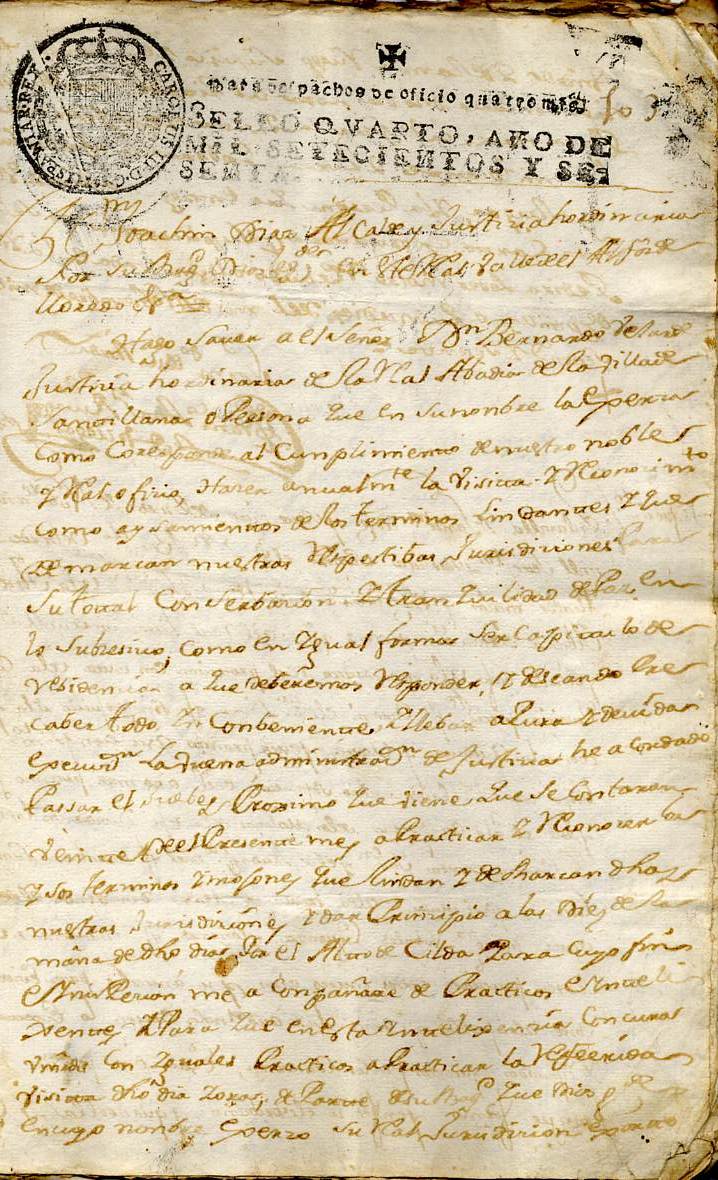 CAROLUS III D G HISPANIAR REX
Para despachos de oficio quatro mrs
SELLO QVARTO, AÑO DE
MIL SETECIENTOS Y SE
SENTA
Joachin Diaz Alcalde y Justicia hordinaria
Por Su Magd Dios gde en este Rl Valle de el Alfoz de
Lloredo &a
Hago Saver a el Señor Dn Bernardo
Justicia hordinaria de la Rl Abadia de la Villa de
Santillana o Persona que en su nombre la exerza
Como Coresponde al Cumplimiento de nuestro noble
y Rl oficio, Hazer anualmte la Visita y Reconocimto
como ayosamientos de los terminos Lindantes y que
demarcan nuestras Respectibas Jurisdiciones Para
su total Conserbazion y tranquilidad de Paz en
lo subcesivo, como en ygual forma ser Capitulo de
residencia a que deberemos Responder, y deseando
caber todo Yn Combeniente y llebar a Pura y devida
execuzn La buena administrazn de Justicia he acordado
Passar el Juebes Proximo que viene que se Contaran
veinte de el Presente mes a Practicar y Reconocer las
y los terminos y mojones que lindan y demarcan dhas
nuestras Jurisdiciones y dar Principio a las Diez de la
mañana de dho dia Por el Alto de Cilda Para cuyo fin
es mi Perzon me a Compañare de Practicos e Ynteli
xentes y Para que en esta Yntelixencia Concurra
Vmd con yguales Practicos a Practicar la Referida
visita dho dia y oras, de Parte de su Magd que Dios gde
en cuyo nombre exerzo su Rl Jurisdicion exorto